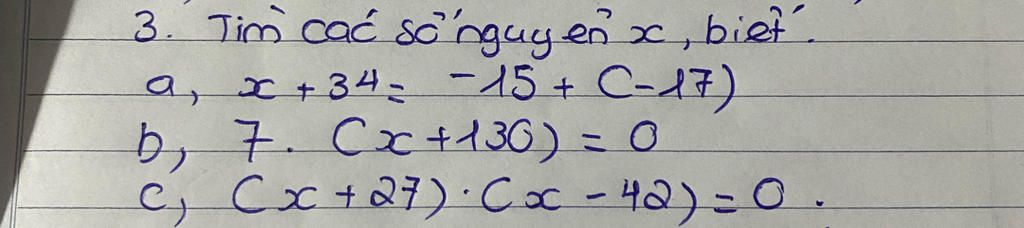 3. Tìm các số nguyên x, biết.
a, x + 34 = -15 + (-17)
b, 7. (x + 130) = 0
c, (x + 27) . (x - 42) = 0 .